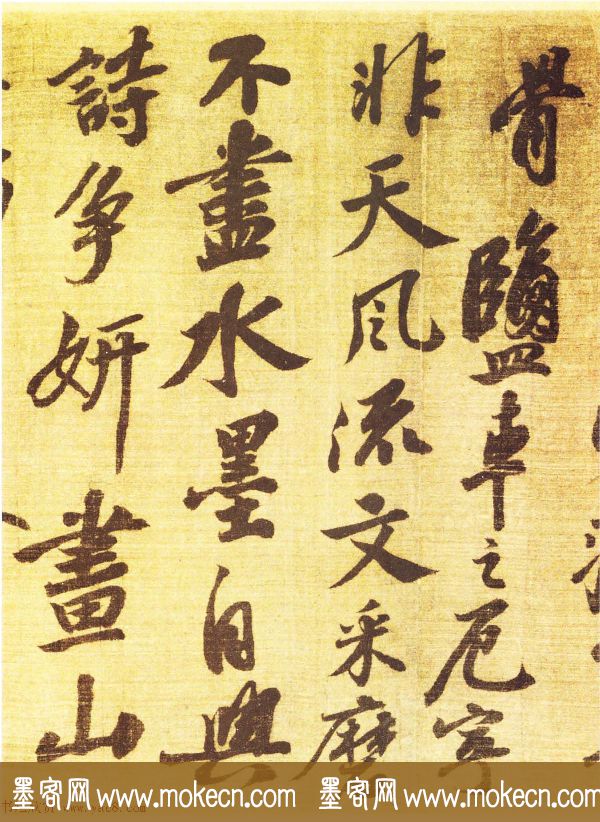 骨鹽車之厄寧
非天風流文采磨
不盡水墨自與
詩争妍畫山
墨客网 www.mokecn.com 墨客网 www.mokecn.com